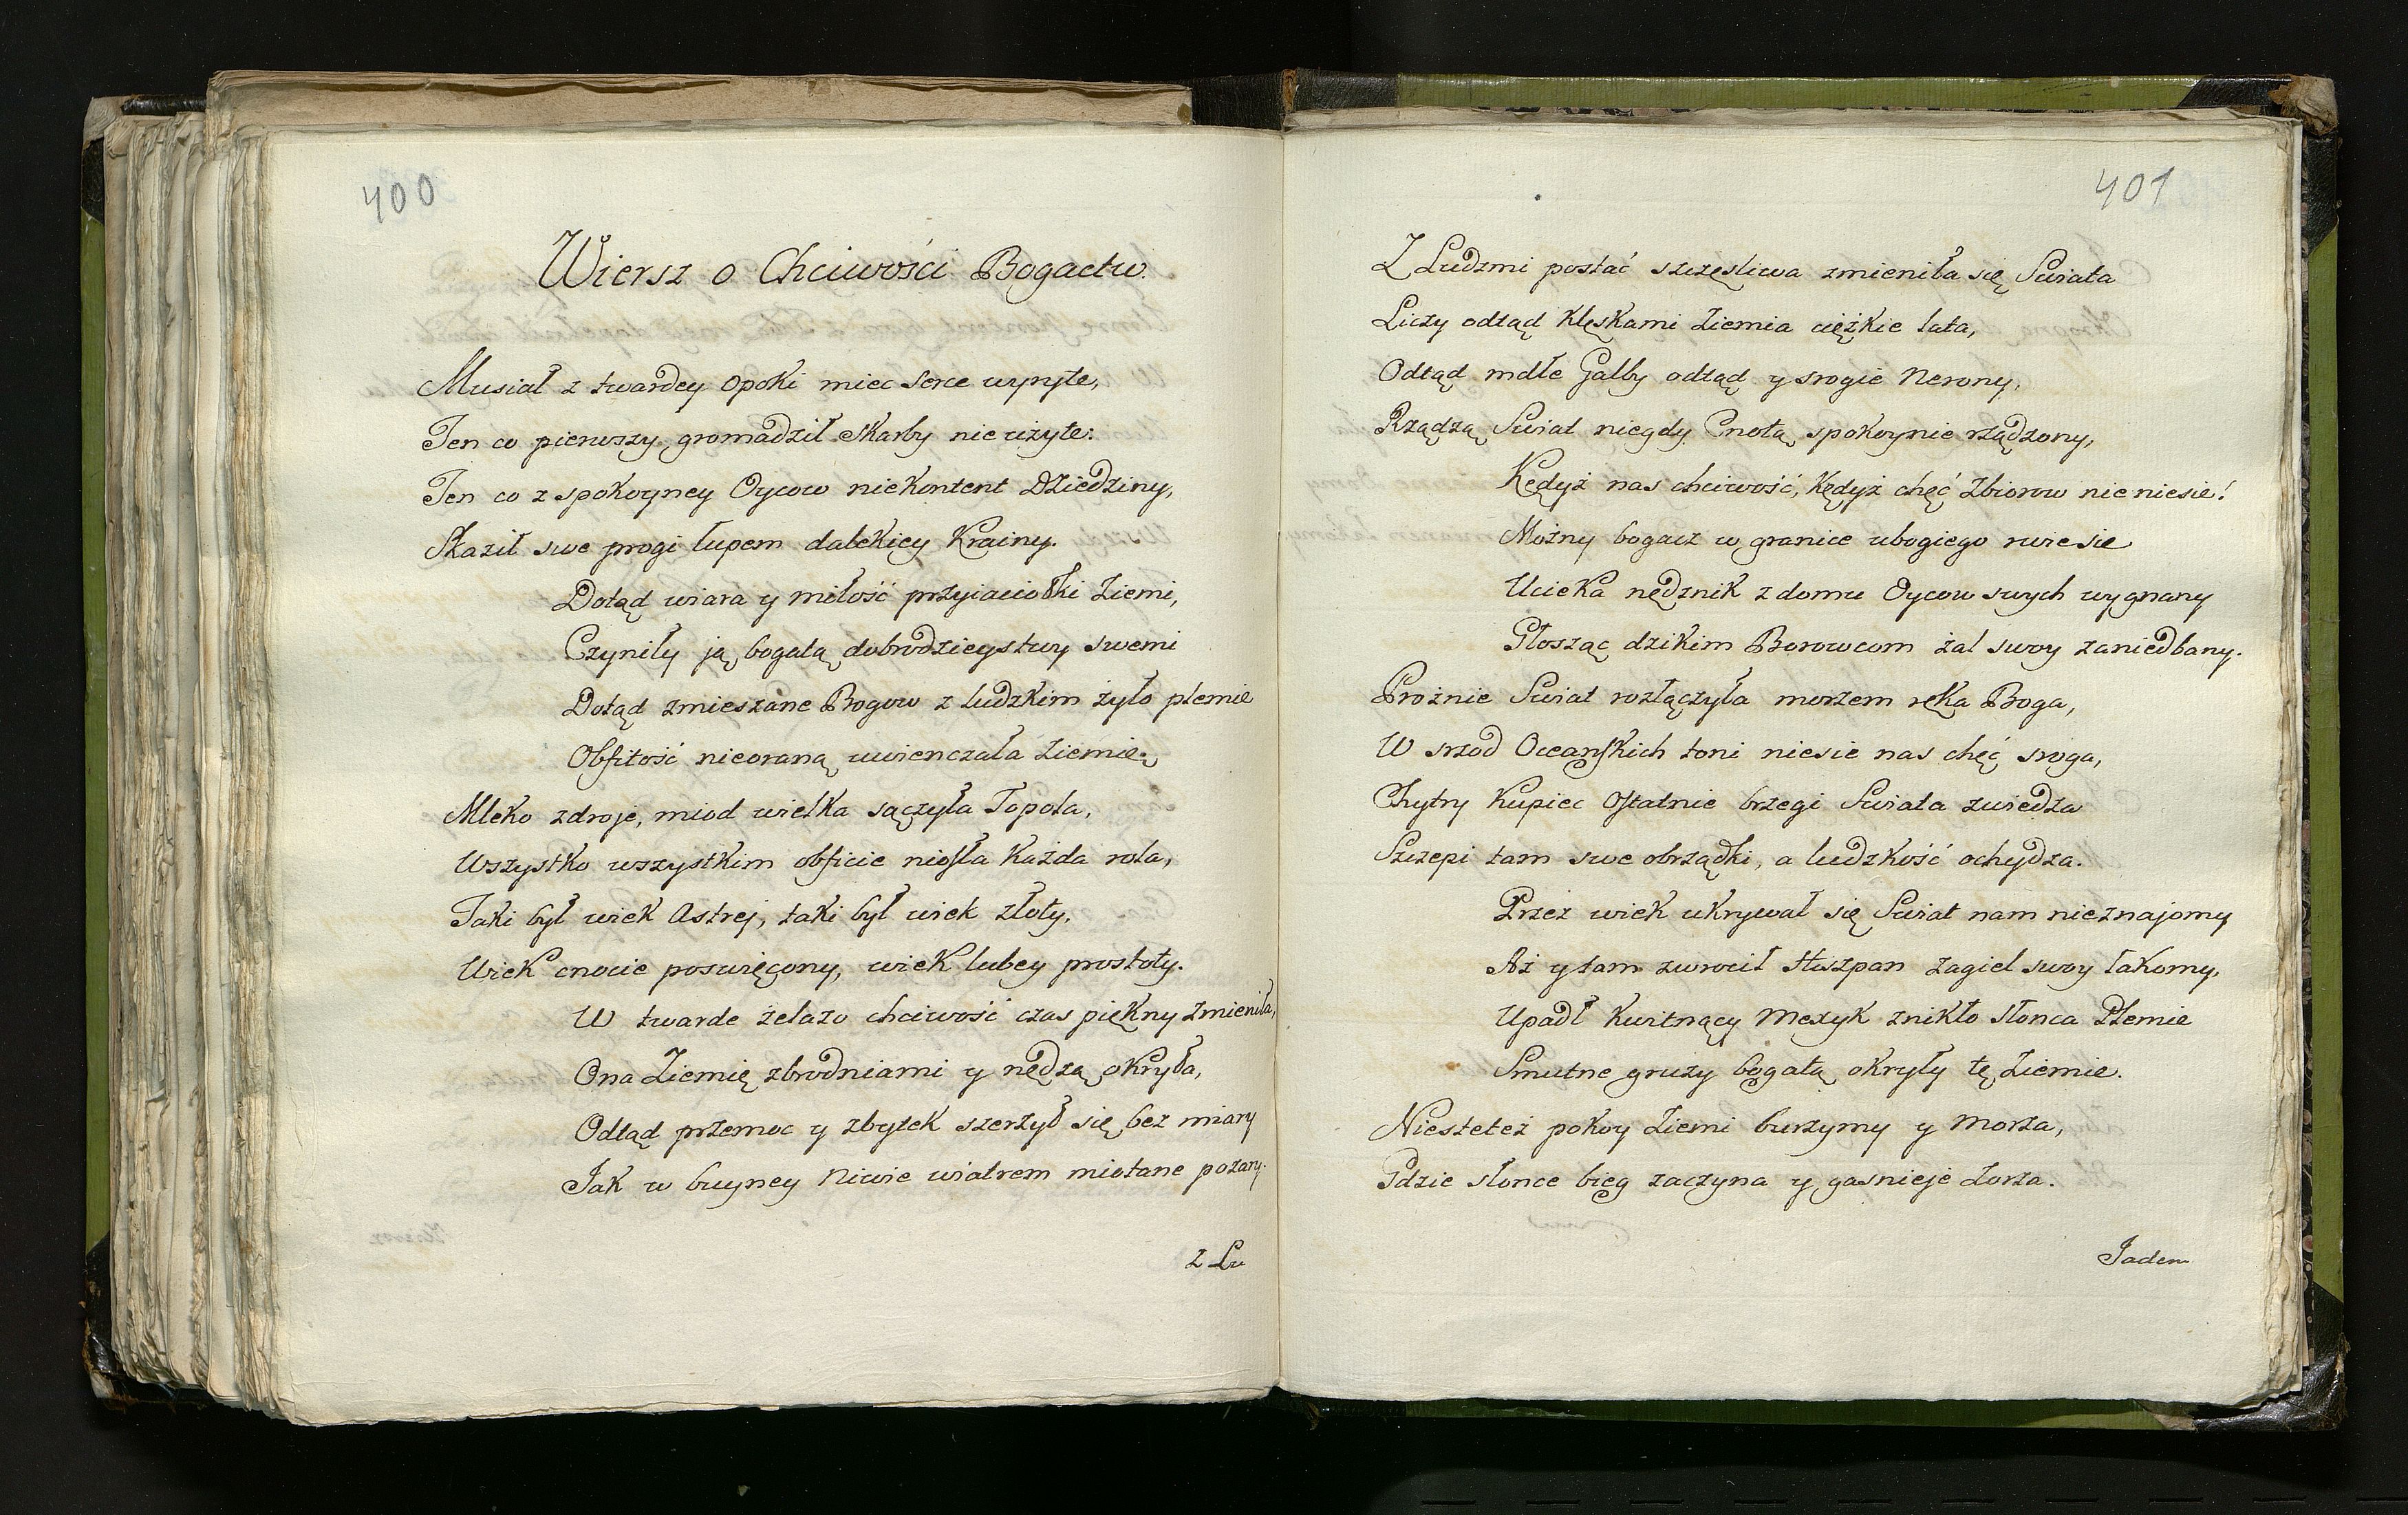 400
Wiersz o Chciwości Bogactw.
Musiał z twardey opoki miec serce wyryte,
Ten co pierwszy gromadził skarby nie użyte:
Ten co z spokoyney Oycow niekontent Dziedziny,
Skaził swe progi łupem dalekiey Krainy.
Dotąd wiara y miłość przyiaciołki Ziemi,
Czyniły ją bogatą dobrodzieystwy swemi
Dotąd zmieszane Bogow z ludzkim żyło plemie
Obfitość nieoraną uwienczała Ziemię.
Mleko zdroje, miod wielka sączyła Topola,
Wszystko wszystkim obficie niosła każda rola,
Taki był wiek Astrej, taki był wiek złoty,
Wiek cnocie poswięcony, wiek lubey prostoty.
W twarde żelazo chciwość czas piękny zmieniła,
Ona Ziemię zbrodniami y nędzą okryła,
Odtąd przemoc y zbytek szerzył się bez miary
Jak w buyney Niwie wiatrem miotane pożary.
Z Lu
401
Z Ludzmi postać szczęsliwa zmieniła się Swiata
Liczy odtąd klęskami Ziemia ciężkie lata,
Odtąd mdłe Galby odtąd y srogie Nerony,
Rządzą Swiat niegdy Cnotą spokoynie rządzony,
Kędyż nas chciwość, kędyż chęć Zbiorow nie niesie!
Możny bogacz w granice ubogiego rwie sie
Ucieka nędznik z domu Oycow swych wygnany
Głosząc dzikim Borowcom żal swoy zaniedbany.
Prożnie Swiat rozłączyła morzem ręka Boga,
W srzod Oceanskich toni niesie nas chęć sroga,
Chytry Kupiec Ostatnie brzegi Swiata zwiedza
Szczepi tam swe obrządki, a ludzkość ochydza.
Przez wiek ukrywał się Swiat nam nieznajomy
Aż y tam zwrocił Hiszpan żagiel swoy łakomy,
Upadł kwitnący Mexyk znikło słonca Plemie
Smutne gruzy bogatą okryły tę Ziemie.
Niestetez pokoy Ziemi burzymy y Morza,
Gdzie słonce bieg zaczyna y gasnieje Zorza.
Jadem